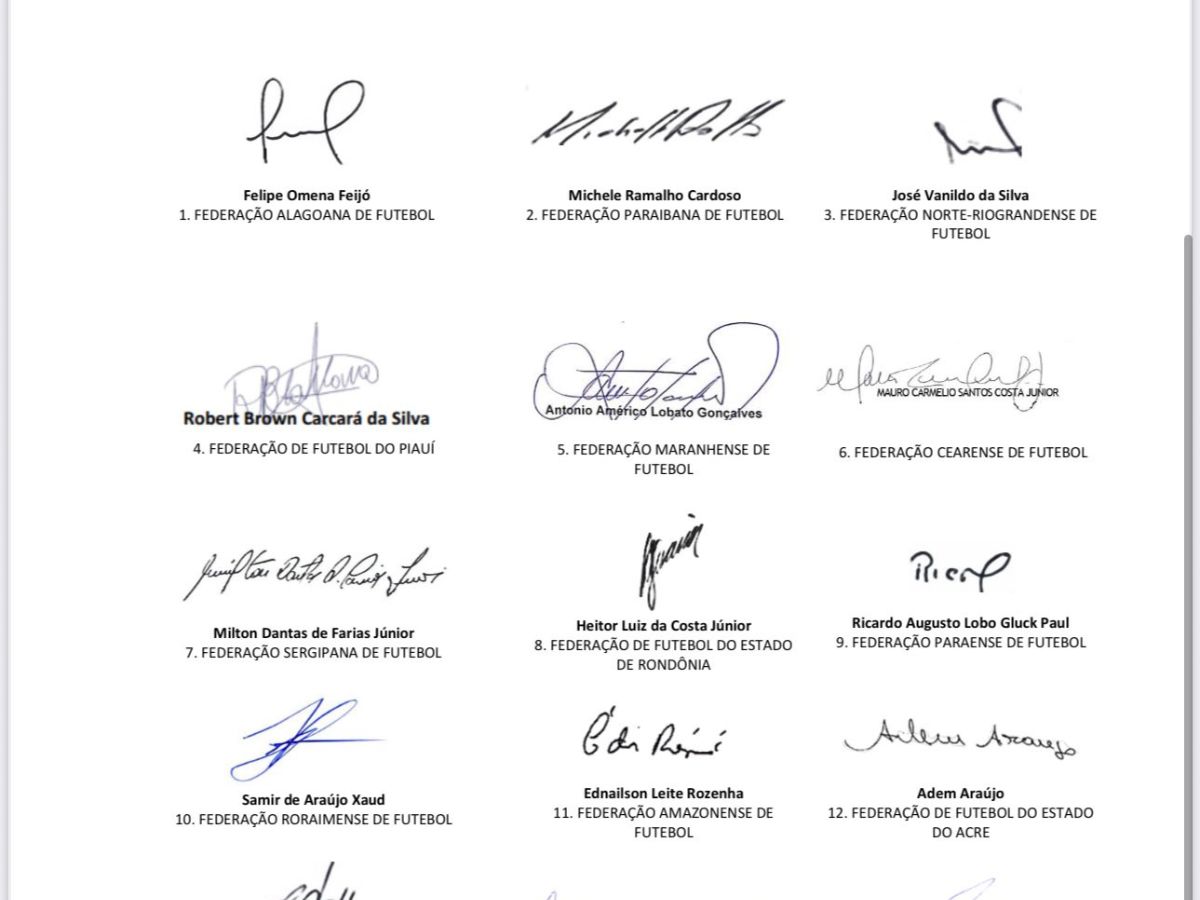 Felipe Omena Feijó
1. FEDERAÇÃO ALAGOANA DE FUTEBOL
Michele Ramalho Cardoso
2. FEDERAÇÃO PARAIBANA DE FUTEBOL
José Vanildo da Silva
3. FEDERAÇÃO NORTE-RIOGRANDENSE DE
FUTEBOL
Robert Brown Carcará da Silva
4. FEDERAÇÃO DE FUTEBOL DO PIAUÍ
Antonio Américo Lobato Gonçalves
5. FEDERAÇÃO MARANHENSE DE
FUTEBOL
MAURO CARMELIO SANTOS COSTA JUNIOR
6. FEDERAÇÃO CEARENSE DE FUTEBOL
Milton Dantas de Farias Júnior
7. FEDERAÇÃO SERGIPANA DE FUTEBOL
Heitor Luiz da Costa Júnior
8. FEDERAÇÃO DE FUTEBOL DO ESTADO
DE RONDÔNIA
Ricardo Augusto Lobo Gluck Paul
9. FEDERAÇÃO PARAENSE DE FUTEBOL
Samir de Araújo Xaud
10. FEDERAÇÃO RORAIMENSE DE FUTEBOL
Ednailson Leite Rozenha
11. FEDERAÇÃO AMAZONENSE DE
FUTEBOL
Adem Araujo
Adem Araújo
12. FEDERAÇÃO DE FUTEBOL DO ESTADO
DO ACRE